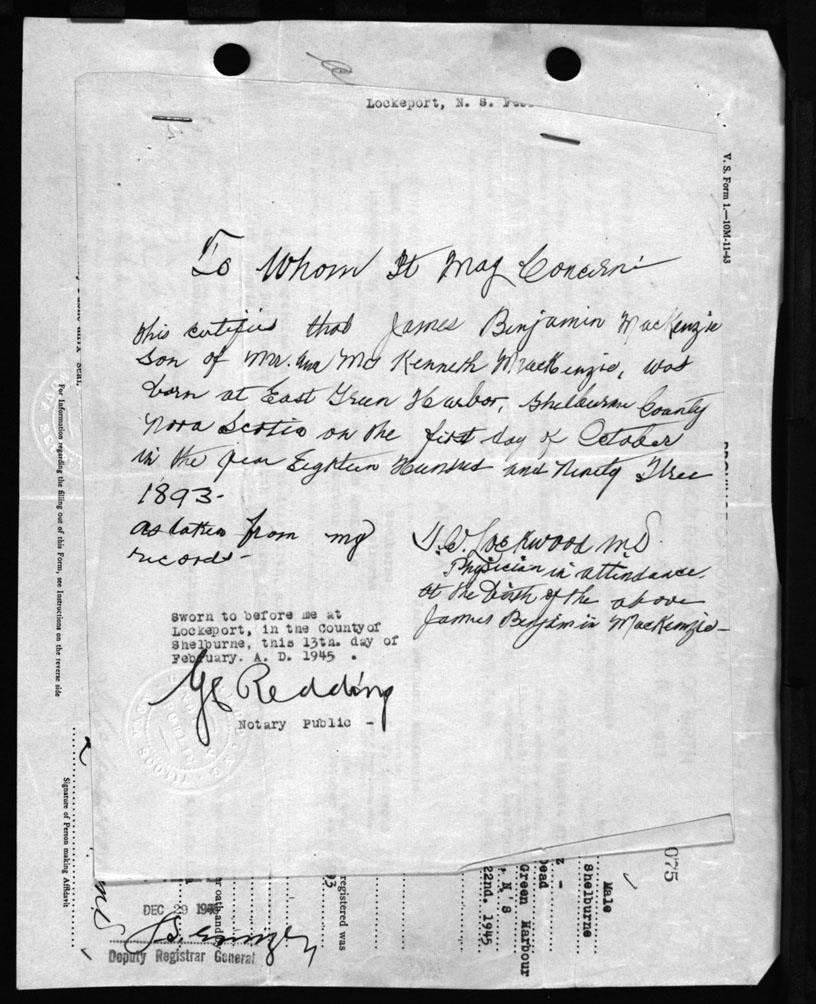 Lockeport, N. S.
To Whom It May Concern:
This certifies that James Benjamin MacKenzie
Son of Mr. and Mrs Kenneth MacKenzie, was
born at East Green Harbor, Shelburne County
Nova Scotia on the first day of October
in the year Eighteen Hundred and Ninety Three
1893-
as taken from my
records-
Lockwood M.D.
Physician in attendance.
at the birth of the above
James Benjamin MacKenzie-
Sworn to before me at
Lockeport, in the County of
Shelburne, this 13th. day of
February. A. D. 1945 .
Redding
Notary Public -
V. S. Form 1.—10M-11-43
For Information regarding the filling out of this Form, see Instructions on the reverse side
Signature of Person making Affidavit
075
Male
Shelburne
Green Harbour
N'S
22nd. 1945
registered was
93
DEC 29
Deputy Registrar General